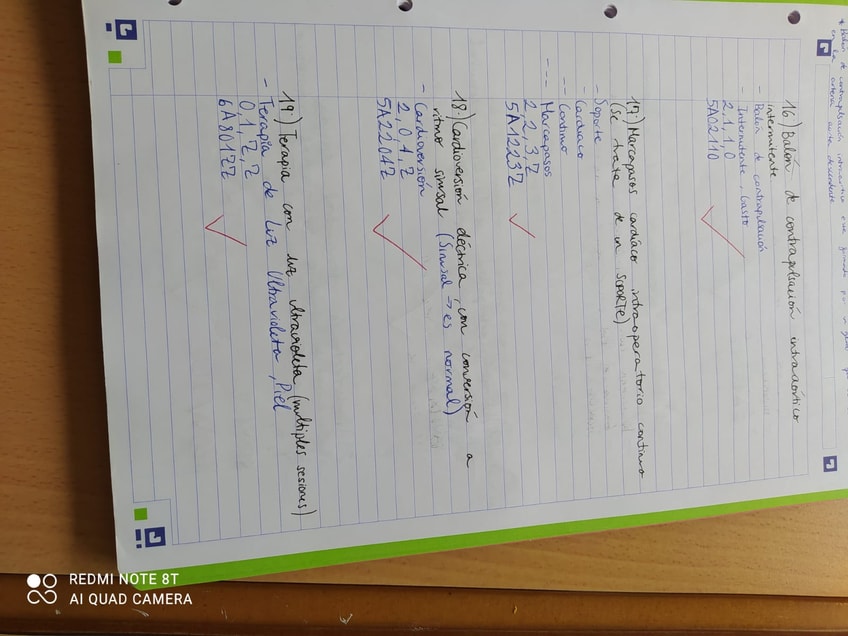 * Balón de contrapulsación intraaórtico
en la arteria aorta descendente
16.) Balón de contrapulsación intraaórtico
intermitente
- Balón de contrapulsación
- Intermitente, Gasto
2, 1, 1, 0
5A02110
17.) Marcapasos cardíaco intraoperatorio continuo
(Se trata de un SOPORTE)
- Soporte
- Cardíaco
-- Continuo
--- Marcapasos
2, 2, 3, Z
5A1223Z
18.) Cardioversión eléctrica, con conversión a
ritmo sinusal (Sinusal → es normal)
- Cardioversión
2, 0, 4, Z
5A2204Z
19.) Terapia con luz ultravioleta (multiples sesiones)
- Terapia de Luz Ultravioleta, Piel
0, 1, Z, Z
6A801ZZ
REDMI NOTE 8T
AI QUAD CAMERA